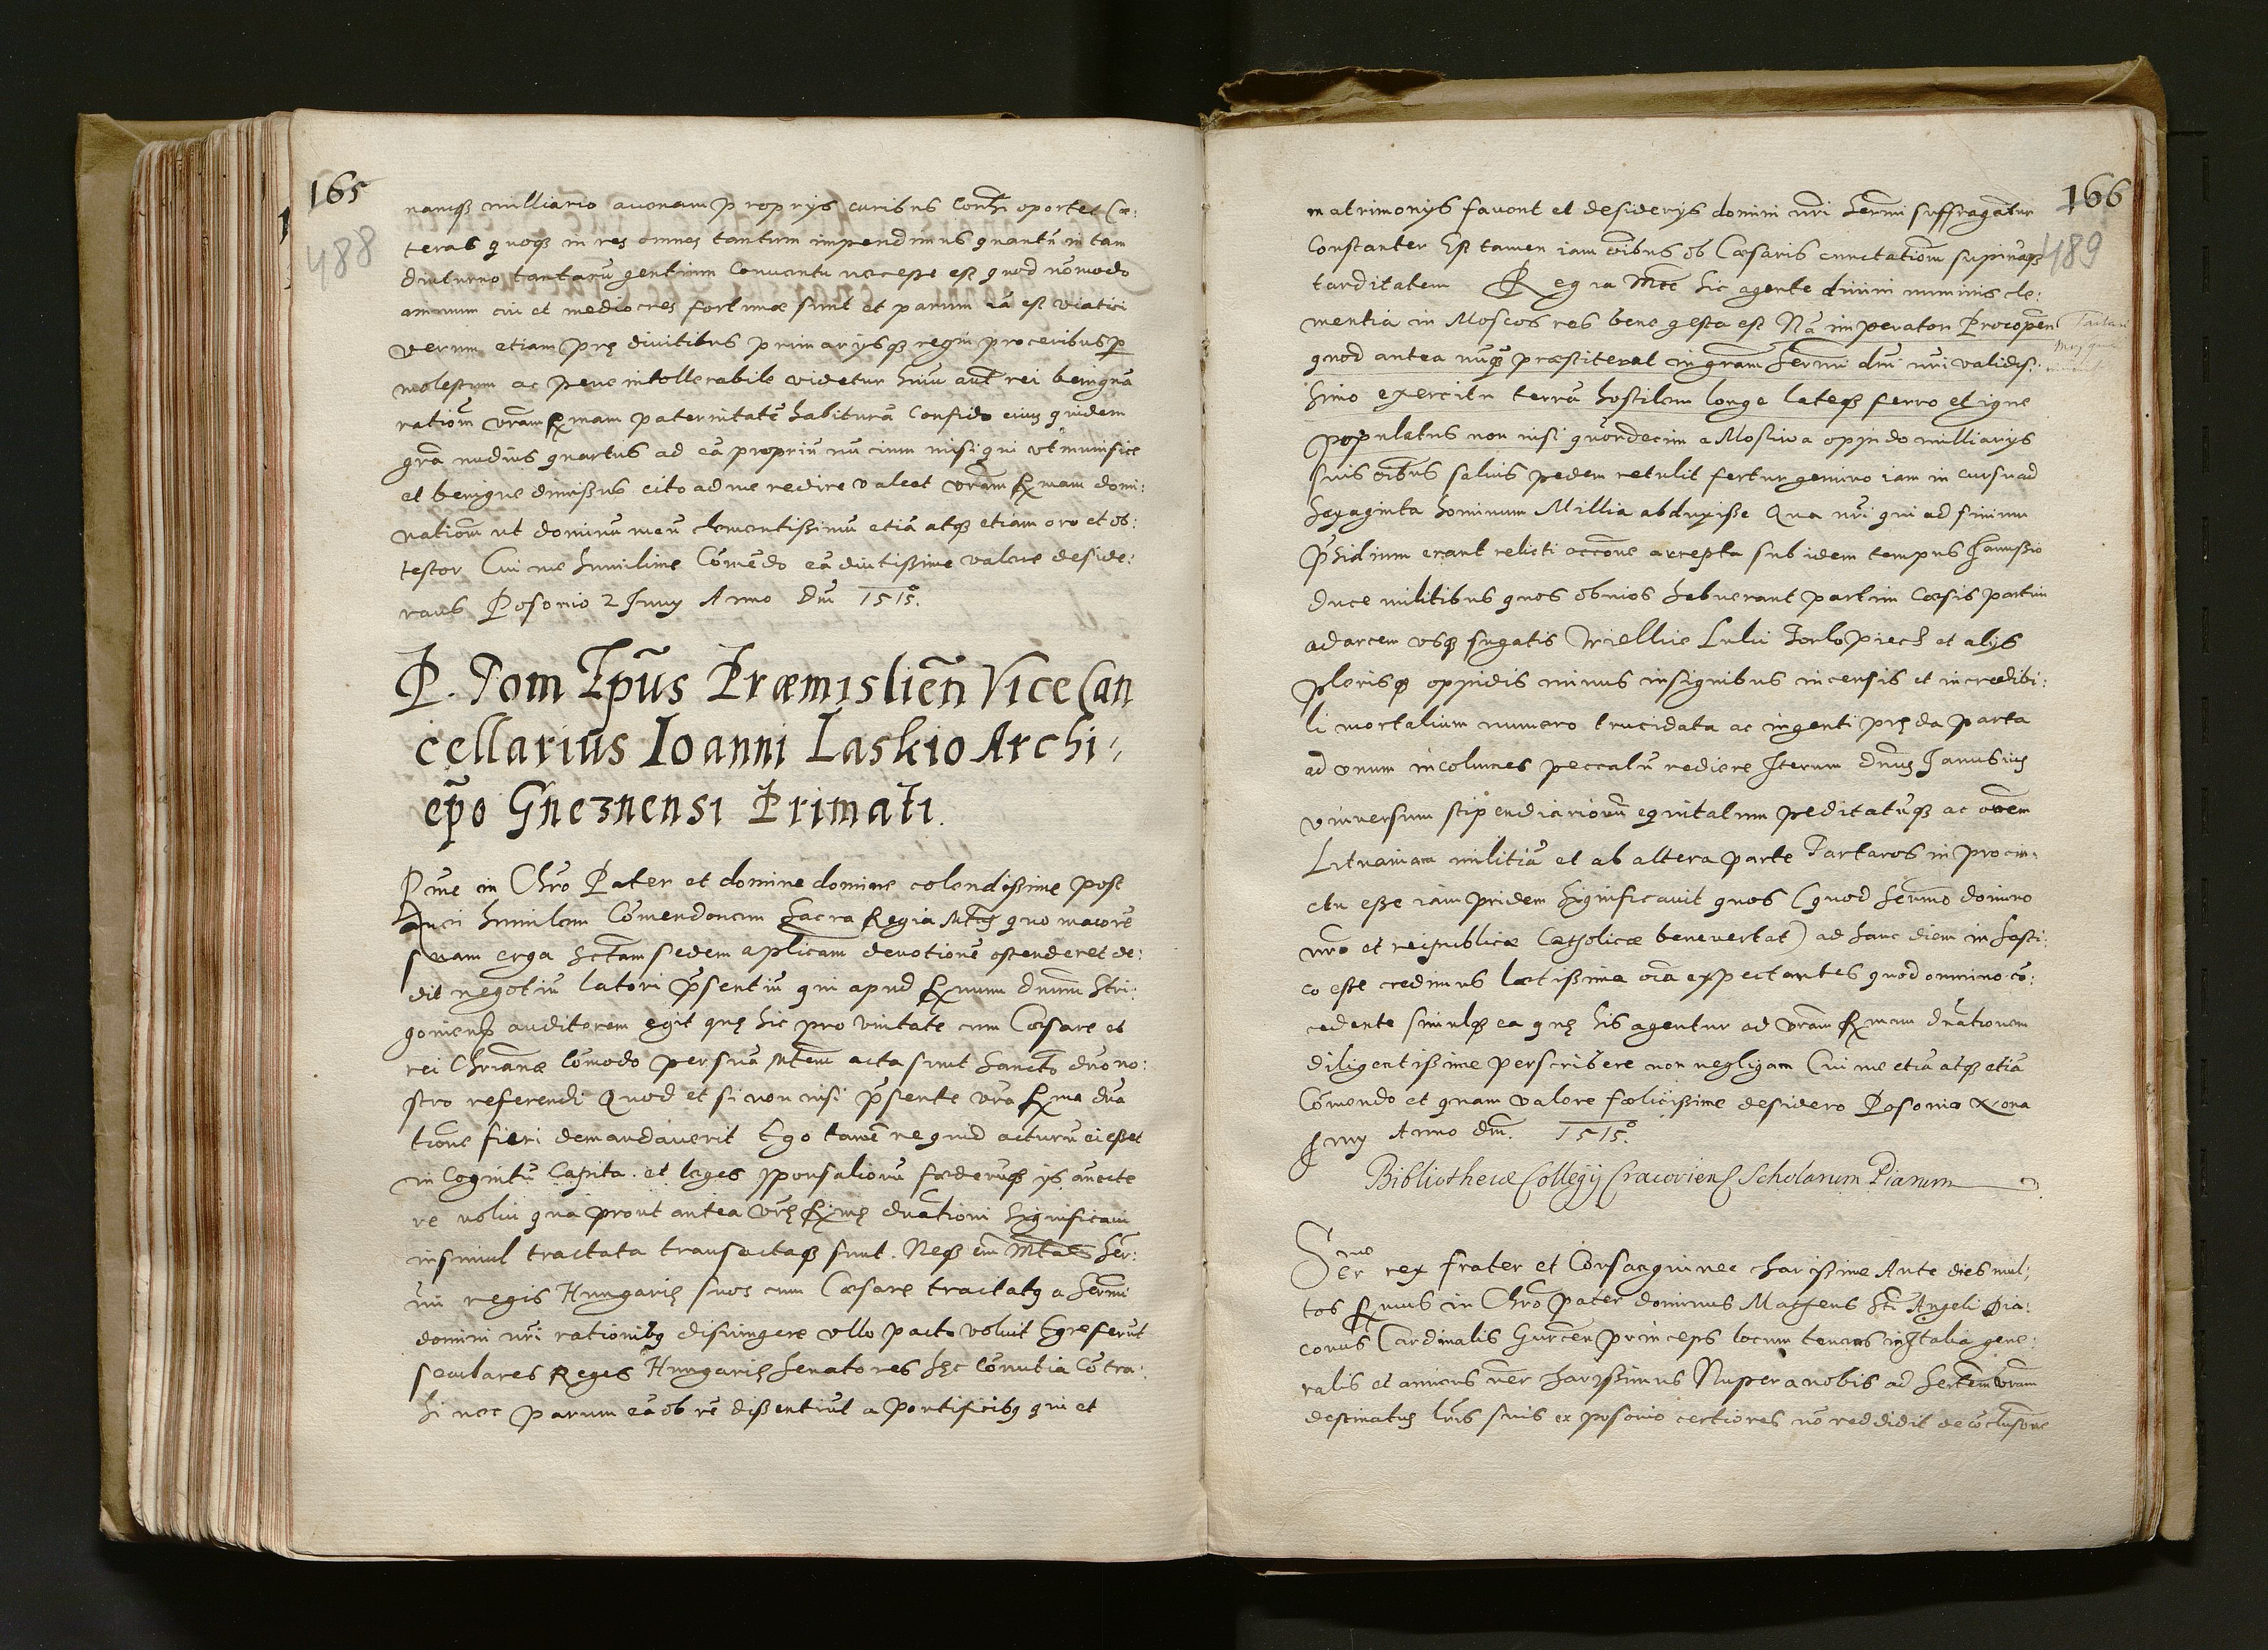 165
488
namqꝫ milliario avenam proprijs curibus conuehi oportet Cæ:
teras quoqꝫ in res omnes tantum impendimus quantũ in tam
diuturno tantarũ gentium Conuentu necesse est quod nõ modo
omnium cui et mediocres fortunæ sunt et parum iã est viatici
verum etiam prę diuitibus primarijsqꝫ regni proceribus
molestum ac pene intollerabile videtur huiu aut rei benignã
rationẽ vram Rmam paternitatẽ habiturã Confido cuius quidem
gra nudius quartus ad eã propriũ nuncium misi qui vt munifice
et benigne dimißus cito ad me redire valeat vram Rmam domi:
nationẽ ut dominũ meũ clementißimũ etiã atqꝫ etiam oro et ob:
testor Cui me humilime Cõmẽdo eã diutißime valere deside:
rans Posonio 2 Juny Anno Dni 1515.
P. Tom Epũs Præmislieñ Vice Can
cellarius Ioanni Laskio Archi⸗
ep̃o Gnesnensi Primati.
Rme in Chro Pater et domine domine colendißime post
mei humilem Cõmendonem Sacra Regia Mtas quo maiorẽ
suam erga Sctam sedem aplicam deuotionẽ ostenderet de:
dit negotiũ latori p̃sentiũ qui apud Rmum Dnum Stri:
goniens auditorem egit quę hic pro vnitate cum Cæsare et
rei Chrianæ Cõmodo per suã Mtem acta sunt Sancto dno no:
stro referendi Quod et si non nisi p̃sente vra Rma dna
tione fieri demandauerit Ego tamẽ ne quid acturũ ei eßet
in Cognitũ Capita et leges sponsaliorũ fœderũqꝫ ijs annecte
re volui quã prout antea vrę Rmę dnationi significaui
in simul tractata transactaqꝫ sunt. Neqꝫ em̃ Mtas Ser:
mi regis Hungarię suos cum Cæsare tractatꝰ a Sermi
domini nri rationibꝰ disiungere vllo pacto voluit Egre ferũt
seculares Regis Hungarię senatores hęc Comitia Cõtra:
hi nec parum eã ob rẽ dißentiũt a pontificibꝰ qui et
166
489
matrimonijs fauent et desiderijs domini nri Sermi suffragãtur
Constanter Est tamen iam oĩbus ob Cæsaris cunctationẽ supinãqꝫ
tarditatem Regia Mtte hic agente diuini numinis cle:
mentia in Moscos res bene gesta est Nã imperator Procopen
quod antea nũqꝫ præstiterat in gram Sermi dni nri validis:
simo exercitu terrã hostilem longe lateqꝫ ferro et igne
populatus non nisi quordecim a Moskwa oppido milliarijs
suis oĩbus saluis pedem retulit fertur genuino iam in cursu ad
sexaginta hominum Millia abduxiße Qua nri qui ad finium
p̃sidium erant relicti occõne arrepta sub idem tempus Januszio
Duce militibus quos obuios habuerant partim cæsis partim
ad arcem vsqꝫ fugatis Wiellkie Luki Torlopiecz et alijs
plerisqꝫ oppidis minus insignibus incensis et incredibi:
li mortalium numero trucidata ac ingenti pręda parta
ad vnum incolumes peccatũ rediere Iterum dnus Janusius
vniuersum stipendiariorũ equitatum peditatũqꝫ ac oem
Lituaniam militiã et ab altera parte Tartaros in procin:
ctu eße iam pridem significauit quos (quod Sermo domino
nro et reipublicæ Catholicæ beneuertat) ad hanc diem in hosti:
co eße credimus lætißima oĩa expectantes quod omnino cõ:
cedente simulqꝫ ea quę his agentur ad vram Rmam dnationem
diligentißime perscribere non negligam Cui me etiã atqꝫ etiã
Cõmendo et quam valere fœlicißime desidero Posonio
Juny Anno Dni. 1515.
Bibliothecæ Collegij Cracoviens Scholarum Piarum
Serme rex frater et Consanguinee charißime Ante dies mul⸗
tos Rmus in Chro pater dominus Mattheus Sti Angeli Dia:
conus Cardinalis Gurcen princeps locum tenens in Italia gene:
ralis et amicus nr charißimus Nuper a nobis ad Sertem vram
destinatus lris suis ex posonio certiores nõ reddidit de cõclusione